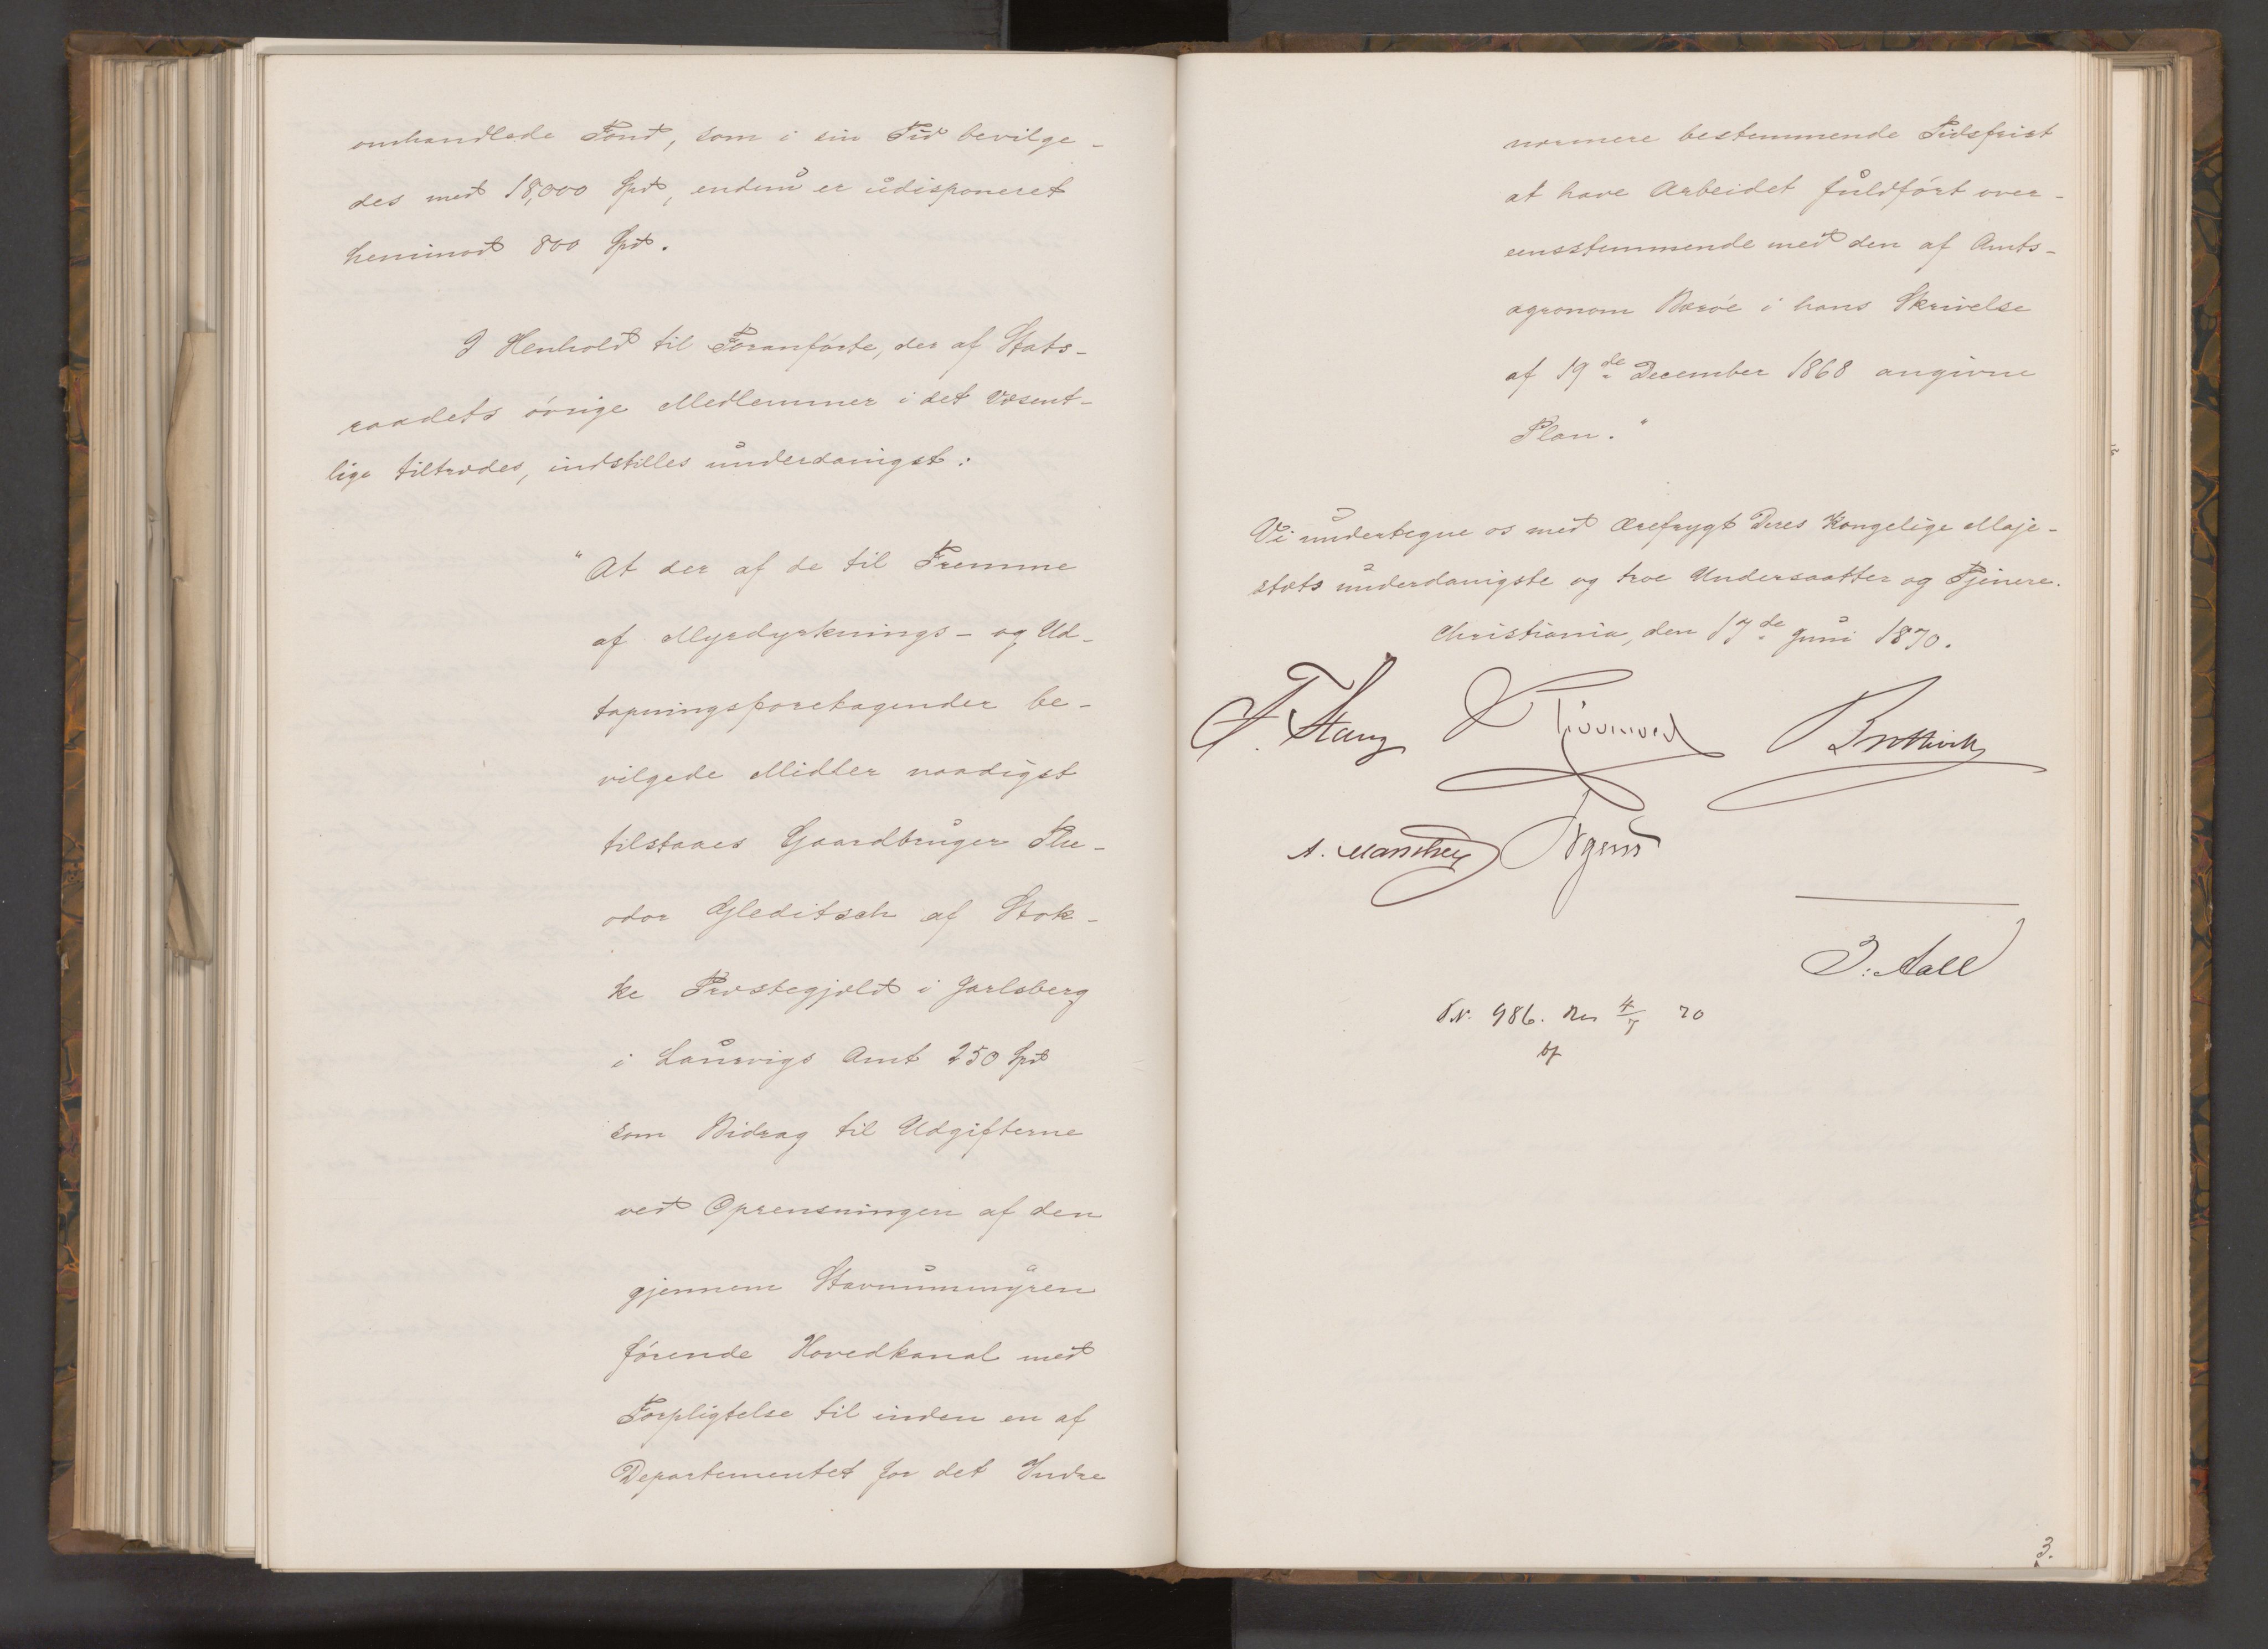 omhandlede Fond, som i sin Tid bevilge-
des med 18,000 Spd, endnu er udisponeret
henimod 800 Spd.
I Henhold til Foranførte, der af Stats-
raadets øvrige Medlemmer i det Væsent-
lige tiltrædes, indstilles underdanigst:
"At der af de til Fremme
af Myrdyrknings- og Ud-
tapningsforetagender be-
vilgede Midler naadigst
tilstaaes Gaardbruger The-
odor Gleditsch af Stok-
ke Præstegjæld i Jarlsberg
i Laurvigs Amt 250 Spd
som Bidrag til Udgifterne
ved Oprensningen af den
gjennem Stavnummyren
førende Hovedkanal med
Forpligtelse til inden en af
Departementet for det Indre
nærmere bestemmende Tidsfrist
at have Arbeidet fuldført over-
eensstemmende med den af Amts-
agronom Barøe i hans Skrivelse
af 19de December 1868 angivne
Plan."
Vi undertegne os med Ærefrygt Deres Kongelige Maje-
stæts underdanigste og troe Undersaatter og Tjenere.
Christiania, den 17de Juni 1870.
F. Stang
A. Manthey
J. Aall
986. 4/7 70
3.